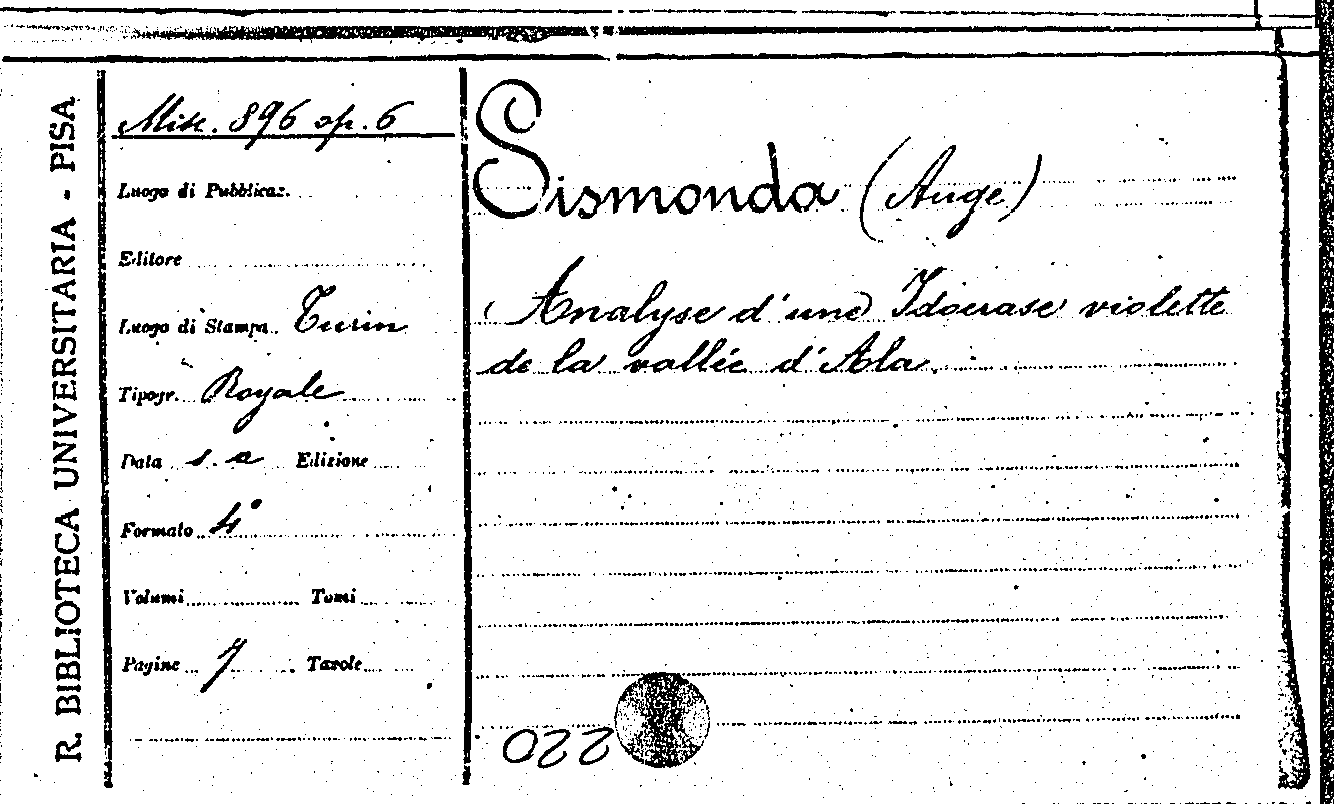 R. BIBLIOTECA UNIVERSITARIA - PISA
Misc. 896 op. 6
Luogo di Pubblicaz.
Editore
Luogo di Stampa Turin
Tipogr. Royale
Data s. a Edizione
Formato 4°
Volumi Tomi
Pagine 7 Tavole
Sismonda (Ange)
Analyse d'une Idocrase violette
de la vallée d'Ala.
220